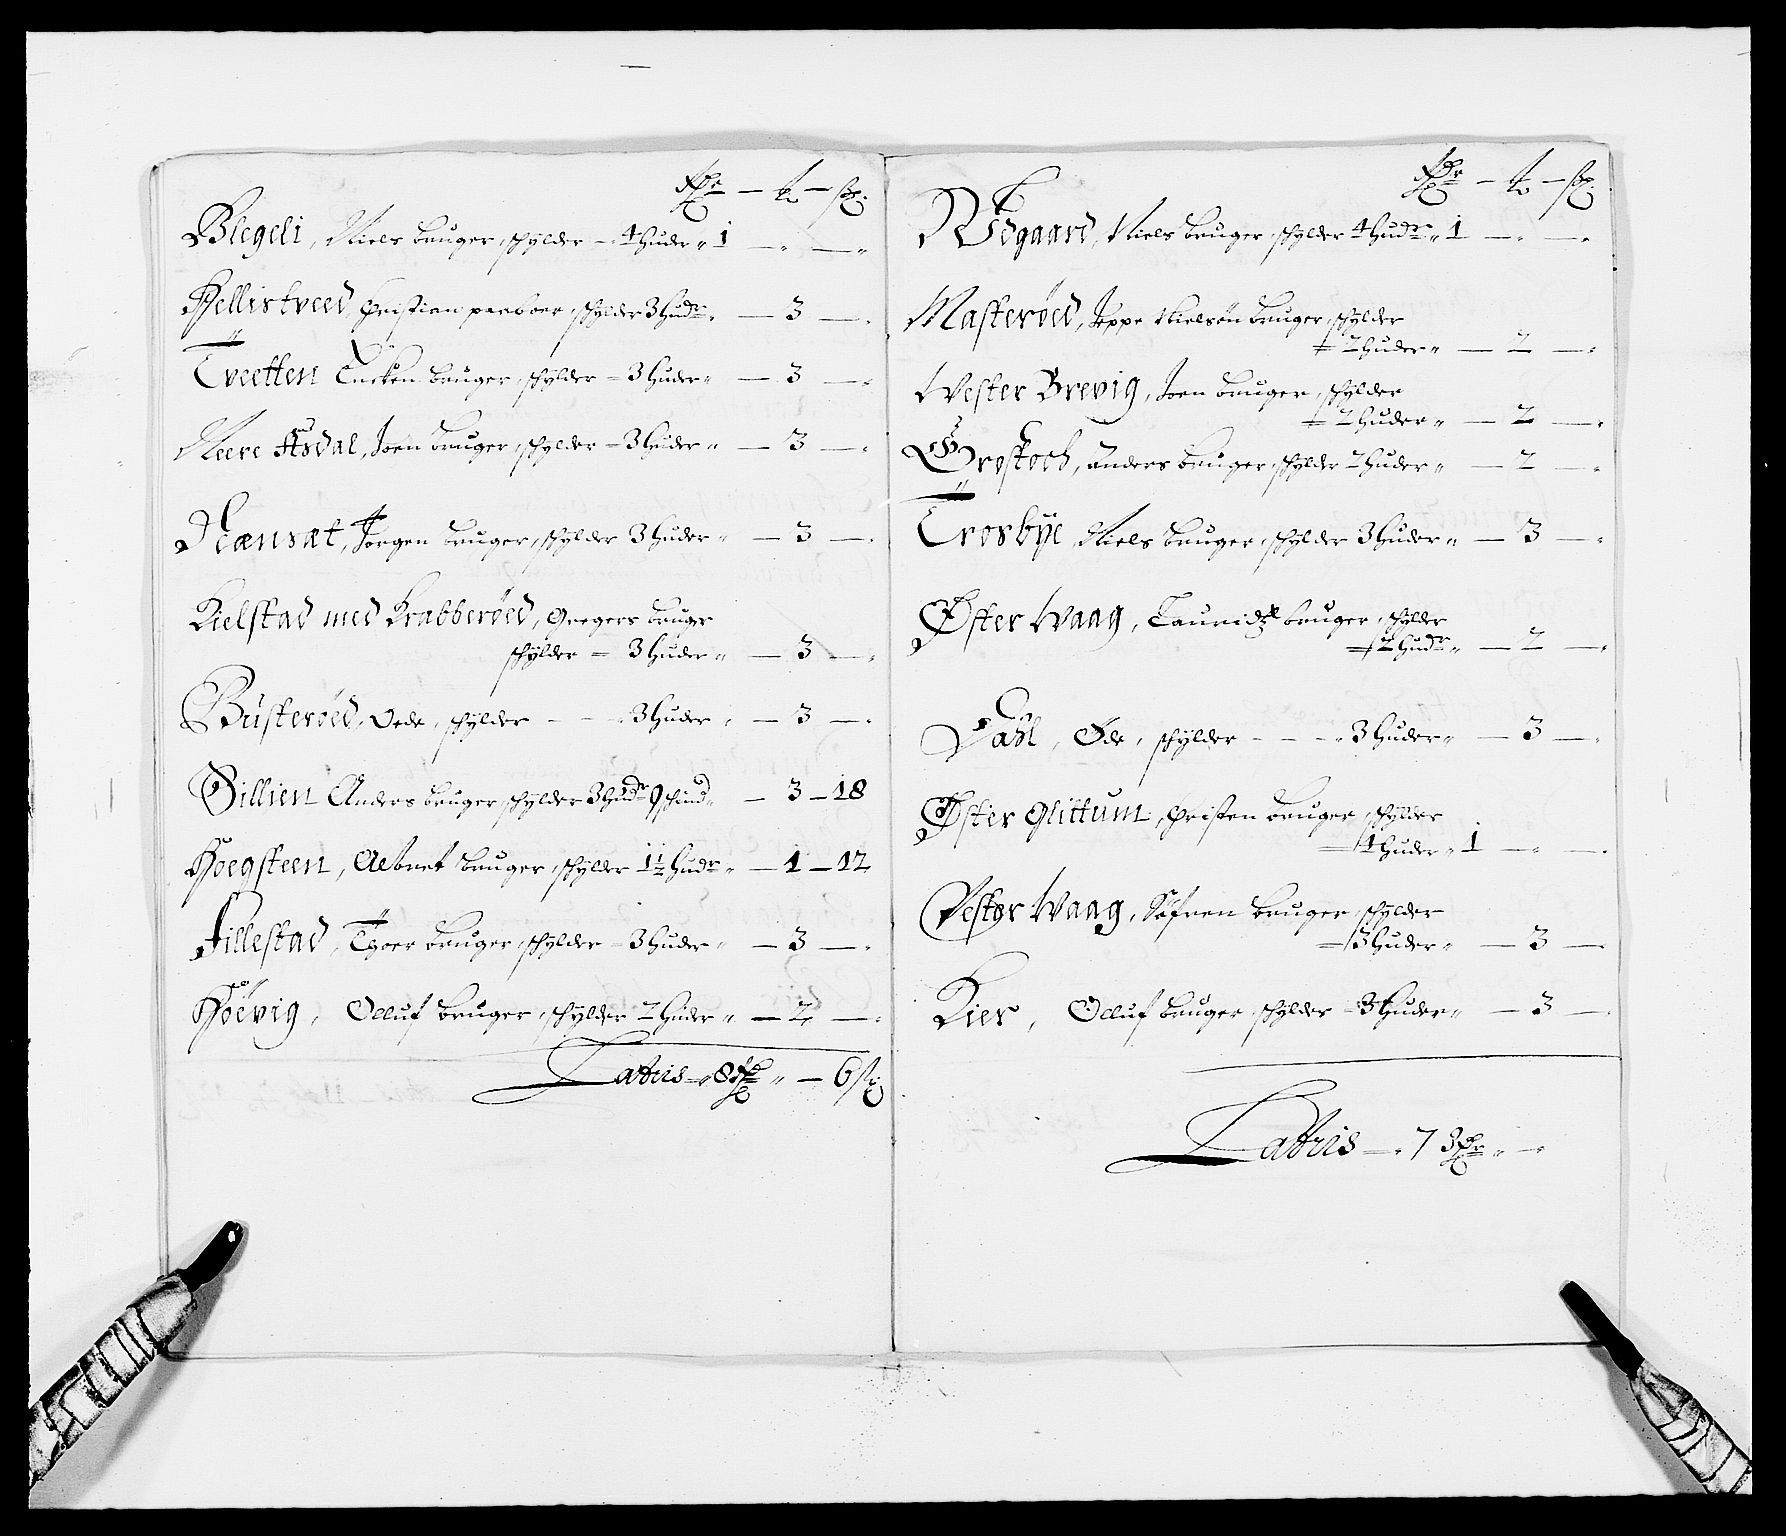 Rdr — ₰ — sk:
Blegeli, Niels bruger, schylder — 4 huder „ 1 — „ — „
Hellistveed, Christian paaboer, schylder 3 hudr „ — 3 — „
Tveetten Encken bruger, schylder = 3 huder „ — 3 — „
Neere Aasdal, Joen bruger, schylder = 3 huder „ — 3 — „
Hænsæt, Jørgen bruger, schylder 3 huder „ — 3 — „
Kielstad med Krabberøed, Gregers brugr
schylder = 3 huder „ — 3 — „
Busterøed, Øede, schylder - - - „ 3 huder „ — 3 — „
Gillien Anders bruger, schylder 3 hudr 9 schind „ — 3 — 18
Høegsteen, bruger, schylder 1½ hudr „ — 1 — 12
Fillestad, Thoer bruger, schylder = 3 huder „ — 3 — „
Høevig, Olluf bruger, schylder 2 huder „ — 2 — „
Lateris „ 8 Rdr „ — 6 sk
Rdr — ₰ — sk:
Ødgaard, Niels bruger, schylder 4 hudr „ 1 — „ — „
Masterøed, Jeppe Nielsøn bruger, schylder
= 2 huder „ — 2 — „
Wester Brevig, Joen bruger, schylder
= 2 huder „ — 2 — „
Grostoch, Anders bruger, schylder 2 huder „ — 2 — „
Trosbye Niels bruger, schylder 3 huder „ — 3 — „
Øster Waag, Lauridtz bruger, schylder
= 2 hudr „ — 2 — „
Dahl, Øde, schylder - - - „ 3 huder „ — 3 — „
Øster Glittum, Christen bruger, schylder
= 4 huder „ 1 — „ — „
Vester Waag, Søfren bruger, schylder
= 3 huder „ — 3 — „
Kier, Olluf bruger, schylder = 3 huder „ — 3 — „
Lateris — „ 7 Rdr „ — „